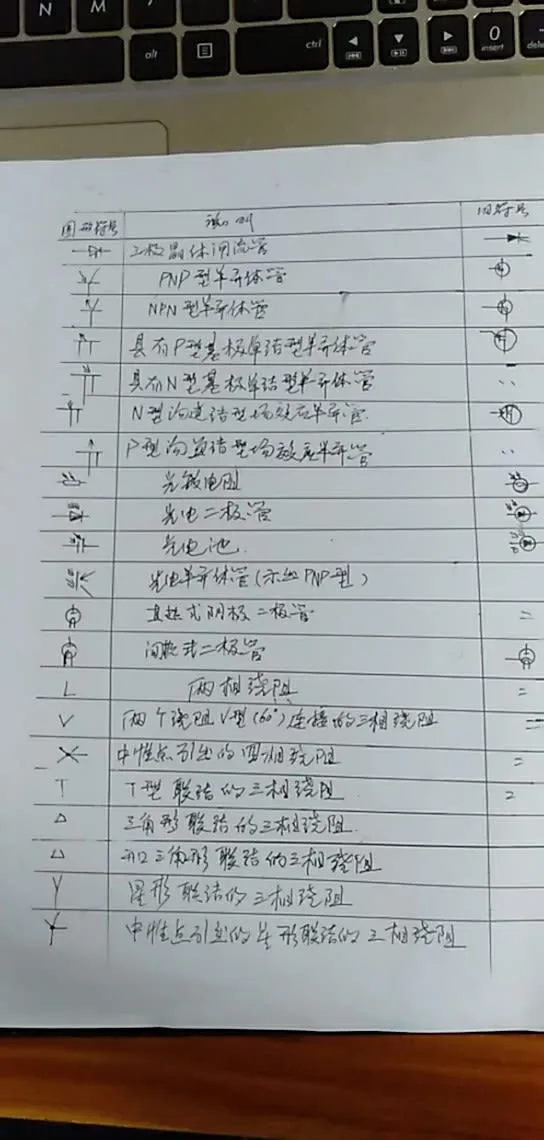 N M
alt ctrl 0 insert
图形符号 说明 旧符号
三极晶体闸流管
PNP型半导体管
NPN型半导体管
具有P型基极单结型半导体管
具有N型基极单结型半导体管
N型沟道结型场效应半导管
P型沟道结型场效应半导管
光敏电阻
光电二极管
光电池
光电半导体管(示出PNP型)
直热式阴极二极管
间热式二极管
两相绕阻
两个绕阻V型(60°)连接的三相绕阻
中性点引出的四相绕阻
T型联结的三相绕阻
三角形联结的三相绕阻
开口三角形联结的三相绕阻
星形联结的三相绕阻
中性点引出的星形联结的三相绕阻